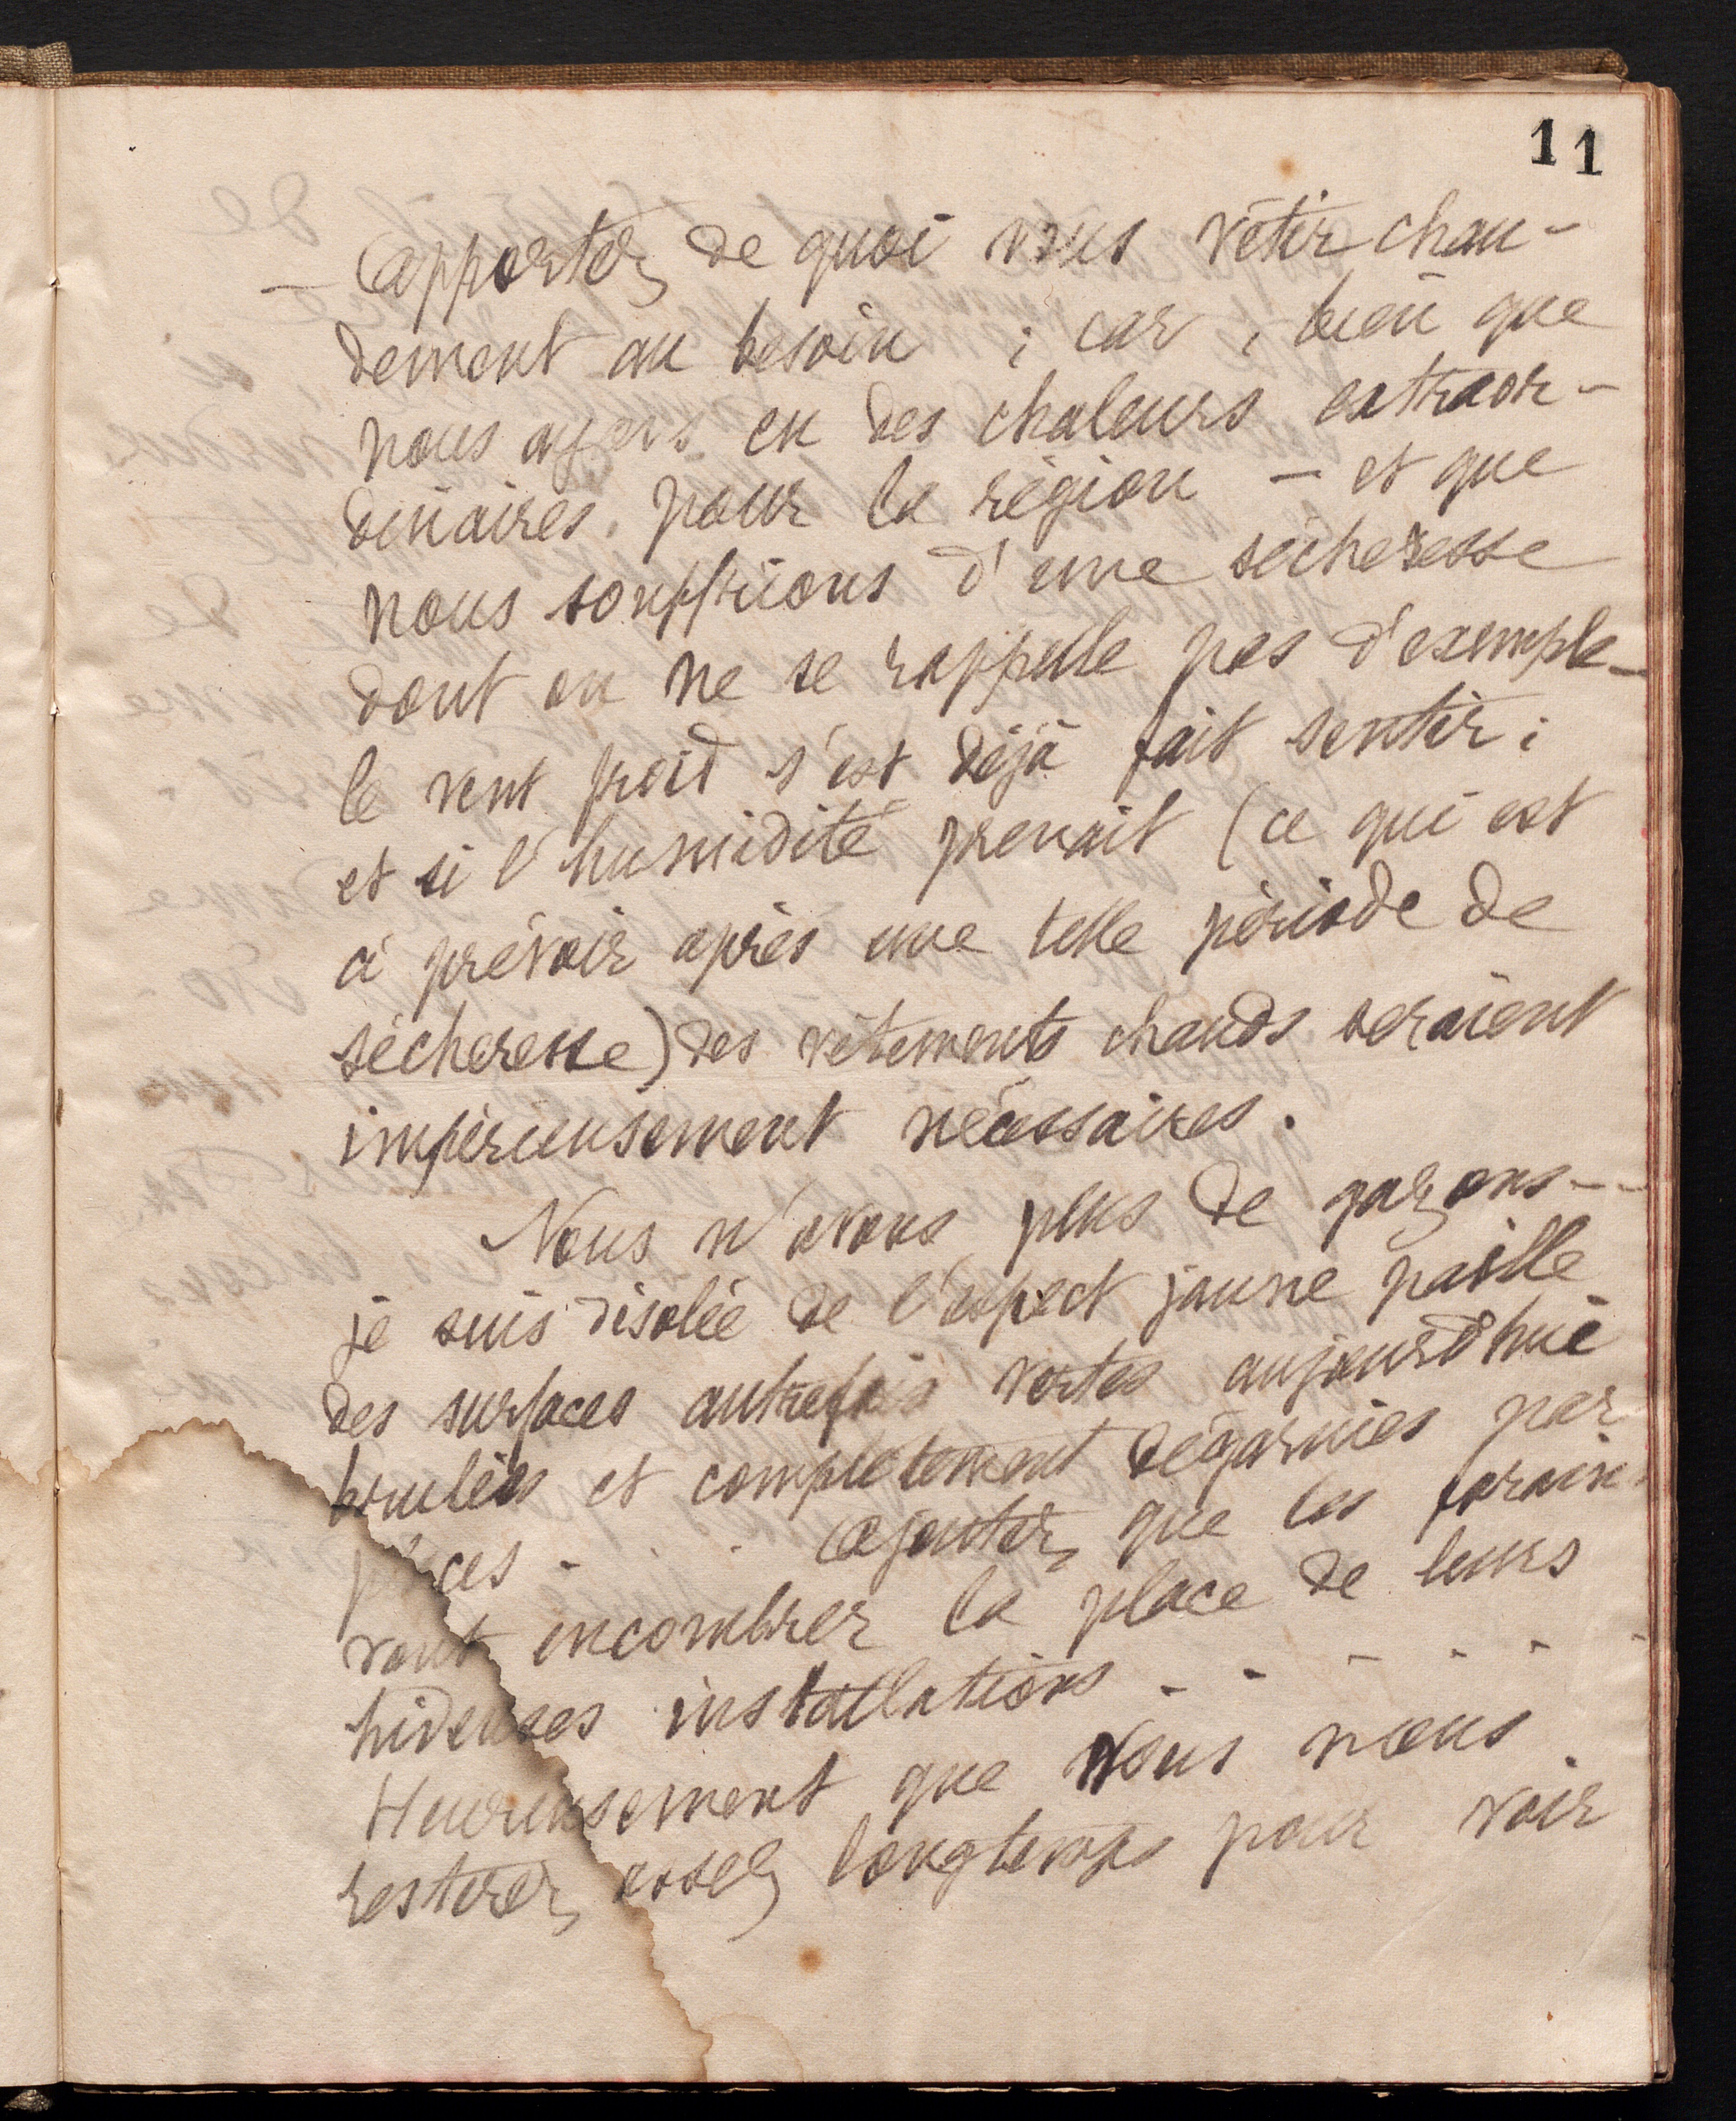 11
— Apportez de quoi vous vêtir chau-
dement au besoin ; car, bien que
nous ayons eu des chaleurs extraor-
dinaires pour la région — et que
nous souffrions d'une sécheresse
dont on ne se rappelle pas d'exemple —
le vent froid s'est déjà fait sentir ;
et si l'humidité prenait (ce qui est
à prévoir après une telle période de
sécheresse) des vêtements chauds seraient
impérieusement nécessaires.
Nous n'avons plus de gazons --
je suis désolée de l'aspect jaune paille
des surfaces autrefois vertes aujourd'hui
brulées et complètement dégarnies par
places - . . Ajoutez que les forains
vont encombrer la place de leurs
hideuses installations - - - - - -
Heureusement que vous nous
resterez assez longtemps pour voir